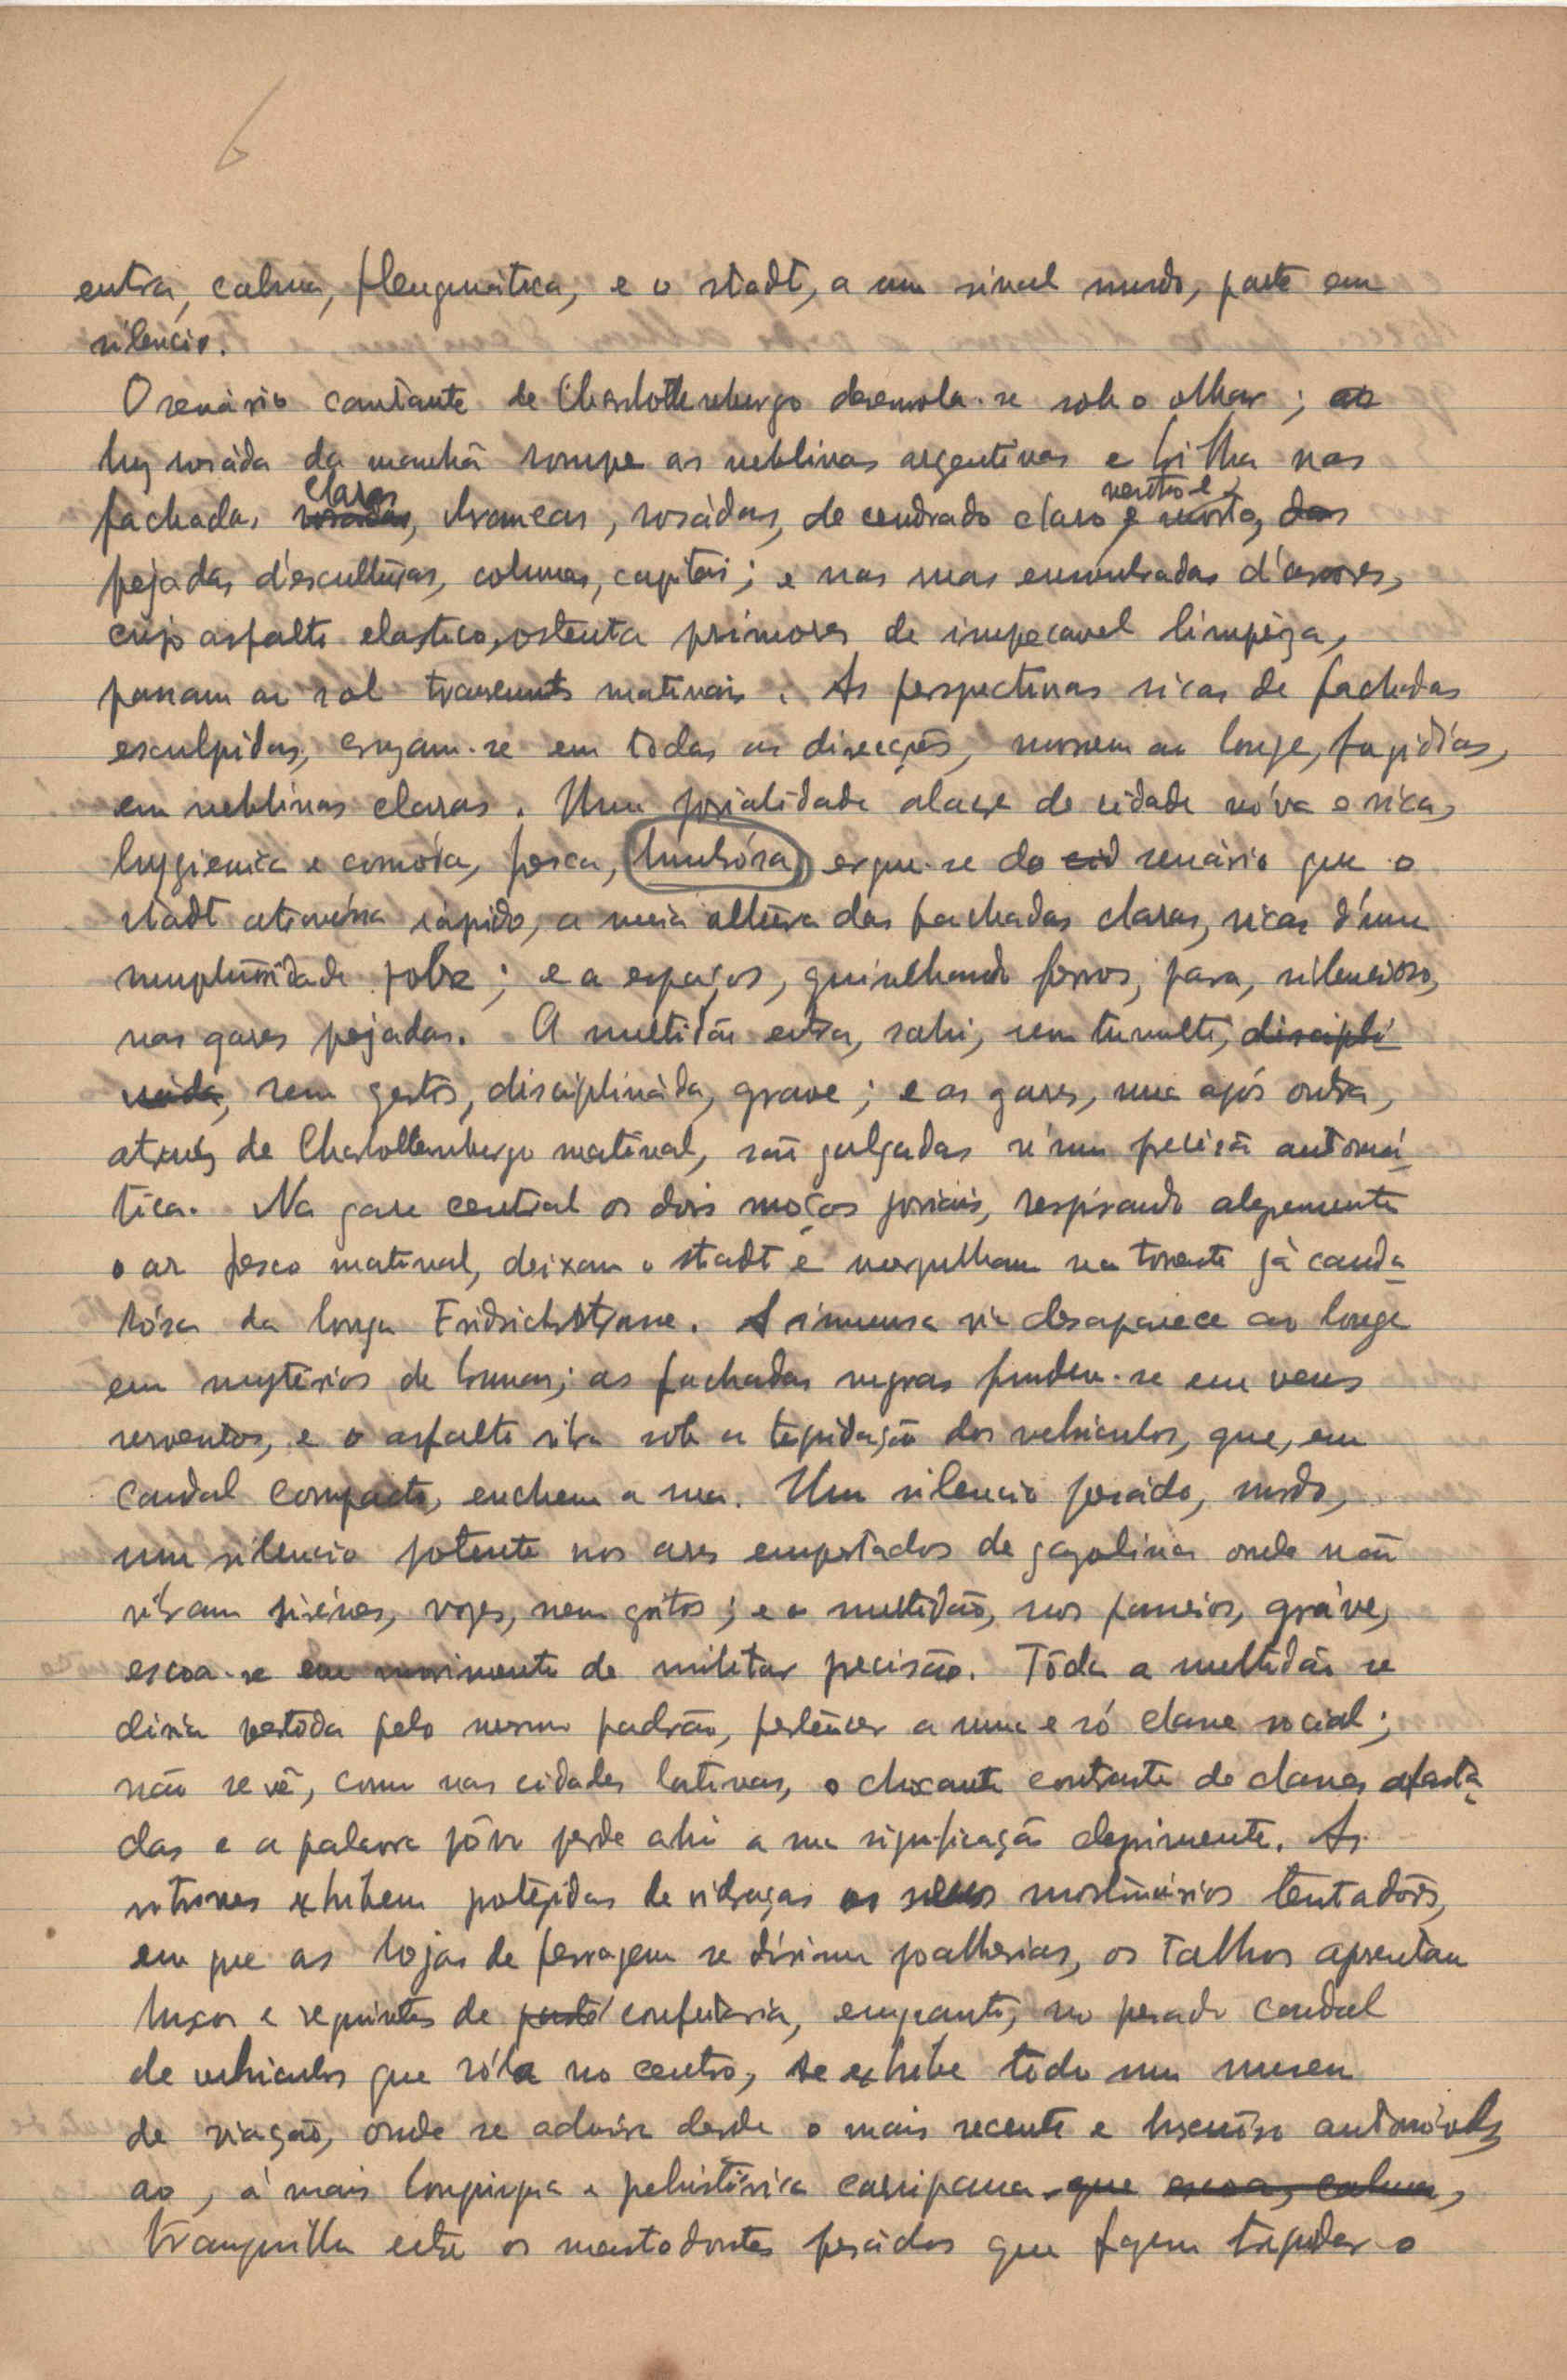 6
entra, calma, fleugmática, e o stadt, a um sinal mudo, parte em
silencio.
O cenário cantante de Charlottenburgo desenrola-se sob o olhar; as
luz rosáda da manhã rompe as neblinas argentinas e brilha nas
fachadas rosadas claras, brancas, rosádas, de cendrado claro e morto, das
pejadas d'esculturas, colunas, capiteis; e nas ruas ensombradas d'arvores,
cujo asfalto elastico, ostenta primores de impecavel limpêza,
passam ao sol transeuntes matinais. As perspectivas ricas de fachadas
esculpidas, cruzam-se em todas as direcções, morrem ao longe, fugidías,
em neblinas claras. Uma jovialidade alacre de cidade nóva e rica,
hygienica e comóda, fresca, ergue-se do cenário que o
stadt atravéssa rápido, a meia altura das fachadas claras, ricas d'uma
sumptuosidade sobre; e a espaços, guinchando ferros, para, silencioso,
nas gares pejadas. A multidão entra, sahi, sem tumulto, discipli
nada, sem gestos, disciplináda, grave; e as gares, uma após outra,
através de Charlottenburgo matinal, são galgadas n'uma precisão automá-
tica. Na gare central os dois moços joviais, respirando alegremente
o ar fresco matinal, deixam o stadt e mergulham na torrente já cauda-
lósa da longa Fridrichstrasse. A immensa via desaparece ao longe
em mysterios de brumas; as fachadas negras fundem-se em veus
cinzentos, e o asfalto vibra sob a trepidação dos vehiculos, que, em
caudal compacto, enchem a rua. Um silencio pesádo, surdo,
um silencio potente nos ares empestados de gazolina onde não
vibram sirénes, vozes, nem gritos; e a multidão, nos passeios, gráve,
escoa-se em movimento de militar precisão. Tôda a multidão se
diria vestida pelo mesmo padrão, pertencer a uma e só classe social;
não se vê, como nas cidades latinas, o chocante contraste de classes afasta-
das e a palavra pôvo perde ahi a sua significação deprimente. As
vitrines exhibem protegidas de vidraças os seus mostruários tentadores,
em que as lojas de ferragem se diriam joalherias, os talhos apresentam
luxos e requintes de confeitaria, emquanto, no pesado caudal
de vehiculos que róla no centro, se exhibe todo um museu
de viação, onde se admira desde o mais recente e luxuôso automóvel,
ao, á mais longínqua e prehistórica carripana que escoa, calma,
tranquilla entre os mastodontes pesádos que fazem trepidar o